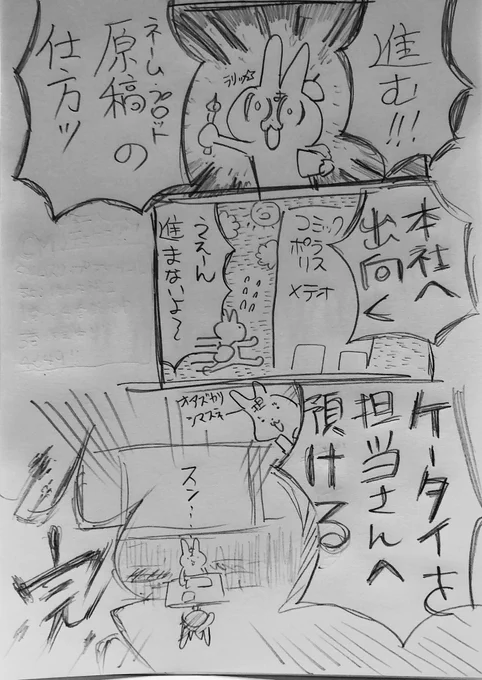 進む!!!
ネーム プロット
原稿の
仕方ッ
本社へ
出向く
コミック
ポラリス
メテオ
うえーん
進まないよ〜
ケータイを
担当さんへ
預ける
担
オアズカリ
シマスネ
スン…
完